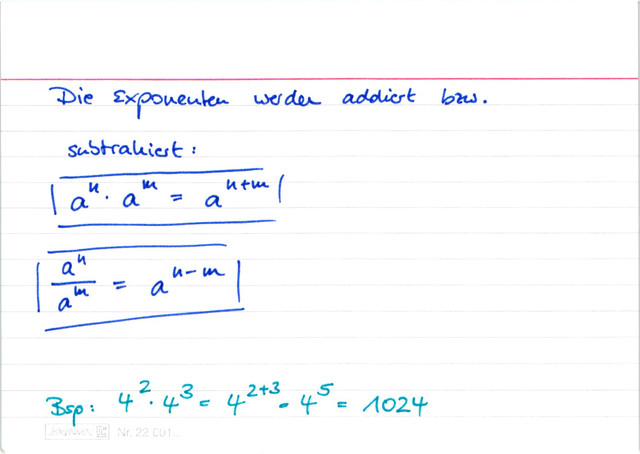 Die Exponenten werden addiert bzw.
subtrahiert:
aⁿ · aᵐ = aⁿ⁺ᵐ
aⁿ/aᵐ = aⁿ⁻ᵐ
Bsp: 4² · 4³ = 4²⁺³ = 4⁵ = 1024
Nr. 22 001